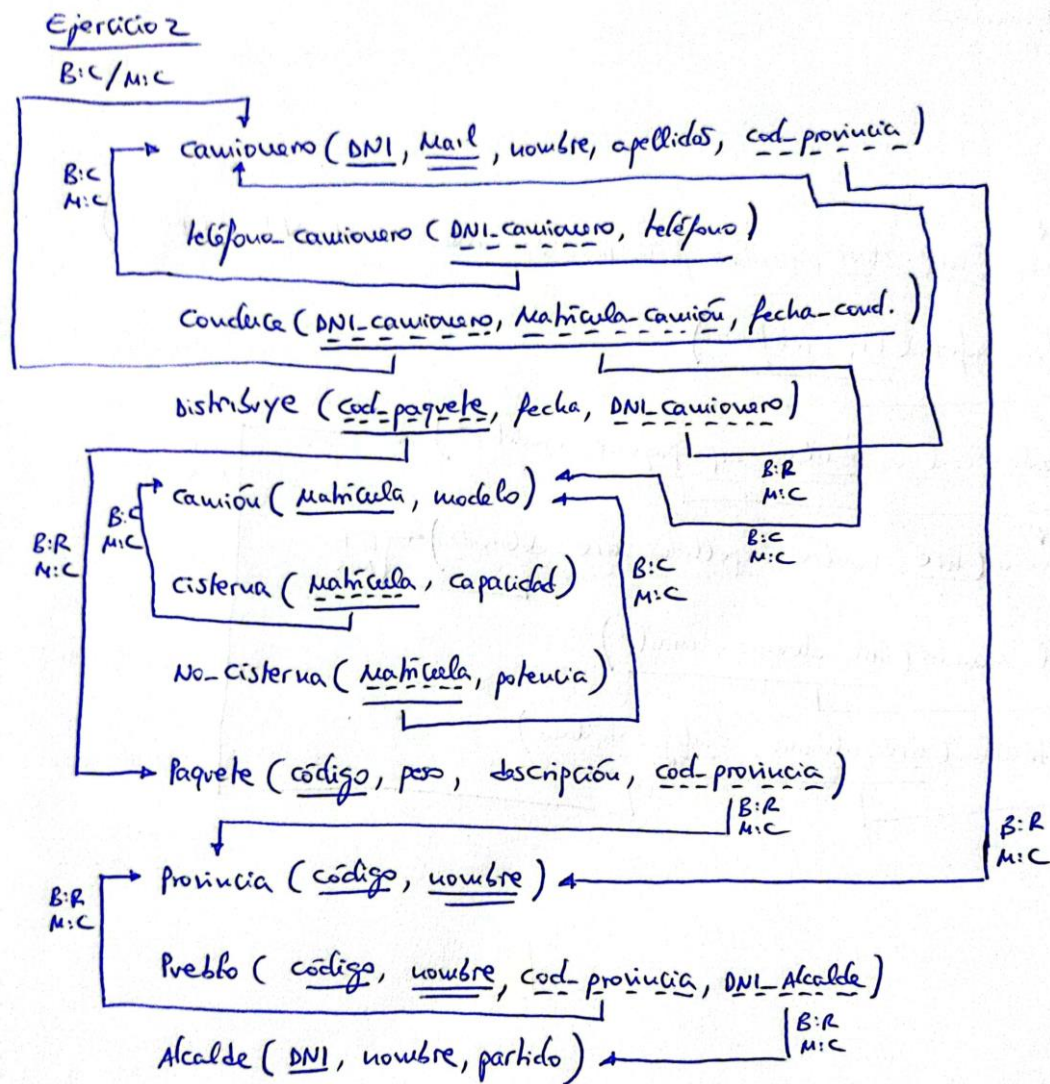 Ejercicio 2
B:C/M:C
Camionero (DNI, Mail, nombre, apellidos, cod_provincia)
B:C
M:C
teléfono_camionero (DNI_camionero, teléfono)
Conduce (DNI_camionero, Matrícula_camión, fecha_cond.)
Distribuye (cod_paquete, fecha, DNI_camionero)
B:R
M:C
Camión (Matrícula, modelo)
B:C
M:C
B:R
M:C
B:C
M:C
Cisterna (Matrícula, capacidad)
B:C
M:C
No_Cisterna (Matrícula, potencia)
Paquete (código, peso, descripción, cod_provincia)
B:R
M:C
B:R
M:C
Provincia (código, nombre)
B:R
M:C
Pueblo (código, nombre, cod_provincia, DNI_Alcalde)
B:R
M:C
Alcalde (DNI, nombre, partido)